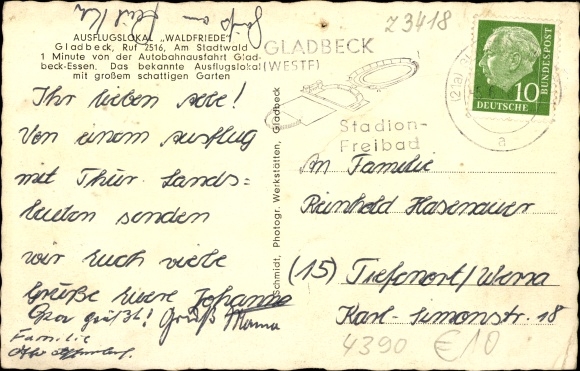 Gruß von
AUSFLUGSLOKAL „WALDFRIEDE“
Gladbeck, Ruf 2516, Am Stadtwald
1 Minute von der Autobahnausfahrt Glad-
beck-Essen. Das bekannte Ausflugslokal
mit großem schattigen Garten
Ihr lieben alle!
Von einem Ausflug
mit Thür. Lands=
leuten senden
wir Euch viele
Grüße Eure Johanna
Opa grüßt! Gruß Mama
Familie
Schmidt, Photogr. Werkstätten, Gladbeck
Z 3418
GLADBECK
(WESTF)
Stadion-
Freibad
DEUTSCHE
BUNDESPOST
10
a
An Familie
Reinhold Hasenauer
(15) Tiefenort/Werra
Karl-Simonstr. 18
4390 €10